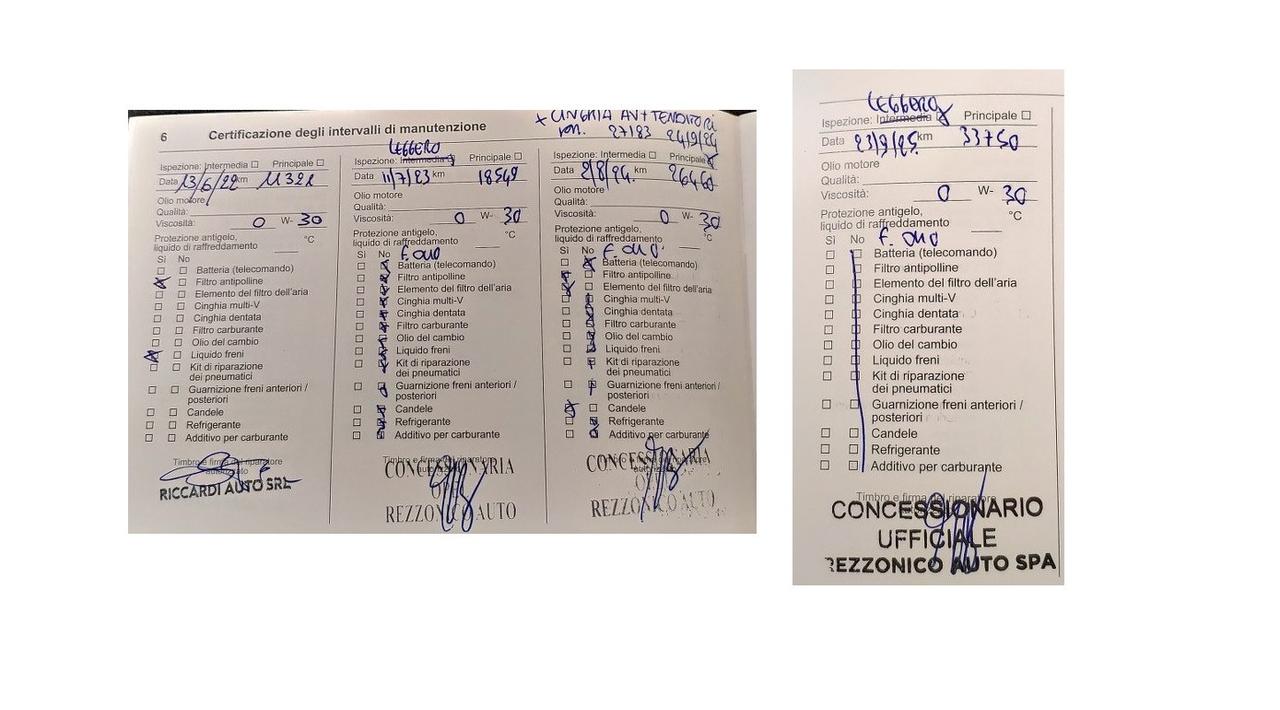 6 Certificazione degli intervalli di manutenzione
+ CINGHIA AUX TENDITORI
27183 24/9/24
Ispezione: Intermedia ☐ Principale ☐
Data 13/6/22 km 11321
Olio motore
Qualità:
Viscosità: 0 W- 30
Protezione antigelo,
liquido di raffreddamento °C
Sì No
Batteria (telecomando)
Filtro antipolline
Elemento del filtro dell'aria
Cinghia multi-V
Cinghia dentata
Filtro carburante
Olio del cambio
Liquido freni
Kit di riparazione
dei pneumatici
Guarnizione freni anteriori /
posteriori
Candele
Refrigerante
Additivo per carburante
Timbro e firma del riparatore
RICCARDI AUTO SRL
LEGGERO
Ispezione: Intermedia ☒ Principale ☐
Data 11/7/23 km 18549
Olio motore
Qualità:
Viscosità: 0 W- 30
Protezione antigelo,
liquido di raffreddamento °C
Sì No F. OLIO
Batteria (telecomando)
Filtro antipolline
Elemento del filtro dell'aria
Cinghia multi-V
Cinghia dentata
Filtro carburante
Olio del cambio
Liquido freni
Kit di riparazione
dei pneumatici
Guarnizione freni anteriori /
posteriori
Candele
Refrigerante
Additivo per carburante
Timbro e firma del riparatore
CONCESSIONARIA
REZZONICO AUTO
Ispezione: Intermedia ☐ Principale ☒
Data 2/8/24. km 26460
Olio motore
Qualità:
Viscosità: 0 W- 30
Protezione antigelo,
liquido di raffreddamento °C
Sì No F. OLIO
Batteria (telecomando)
Filtro antipolline
Elemento del filtro dell'aria
Cinghia multi-V
Cinghia dentata
Filtro carburante
Olio del cambio
Liquido freni
Kit di riparazione
dei pneumatici
Guarnizione freni anteriori /
posteriori
Candele
Refrigerante
Additivo per carburante
CONCESSIONARIA
REZZONICO AUTO
LEGGERO
Ispezione: Intermedia ☒ Principale ☐
Data 23/9/25. km 33750
Olio motore
Qualità:
Viscosità: 0 W- 30
Protezione antigelo,
liquido di raffreddamento °C
Sì No F. OLIO
Batteria (telecomando)
Filtro antipolline
Elemento del filtro dell'aria
Cinghia multi-V
Cinghia dentata
Filtro carburante
Olio del cambio
Liquido freni
Kit di riparazione
dei pneumatici
Guarnizione freni anteriori /
posteriori
Candele
Refrigerante
Additivo per carburante
Timbro e firma del riparatore
CONCESSIONARIO
UFFICIALE
REZZONICO AUTO SPA